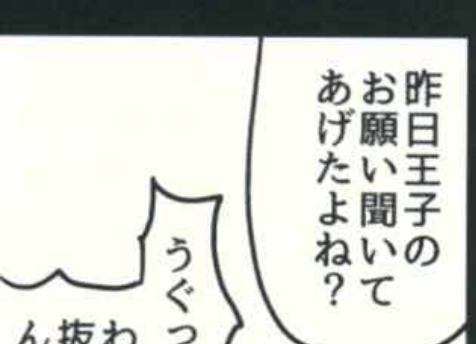 昨日王子の
お願い聞いて
あげたよね？
うぐっ
わ
抜
ん